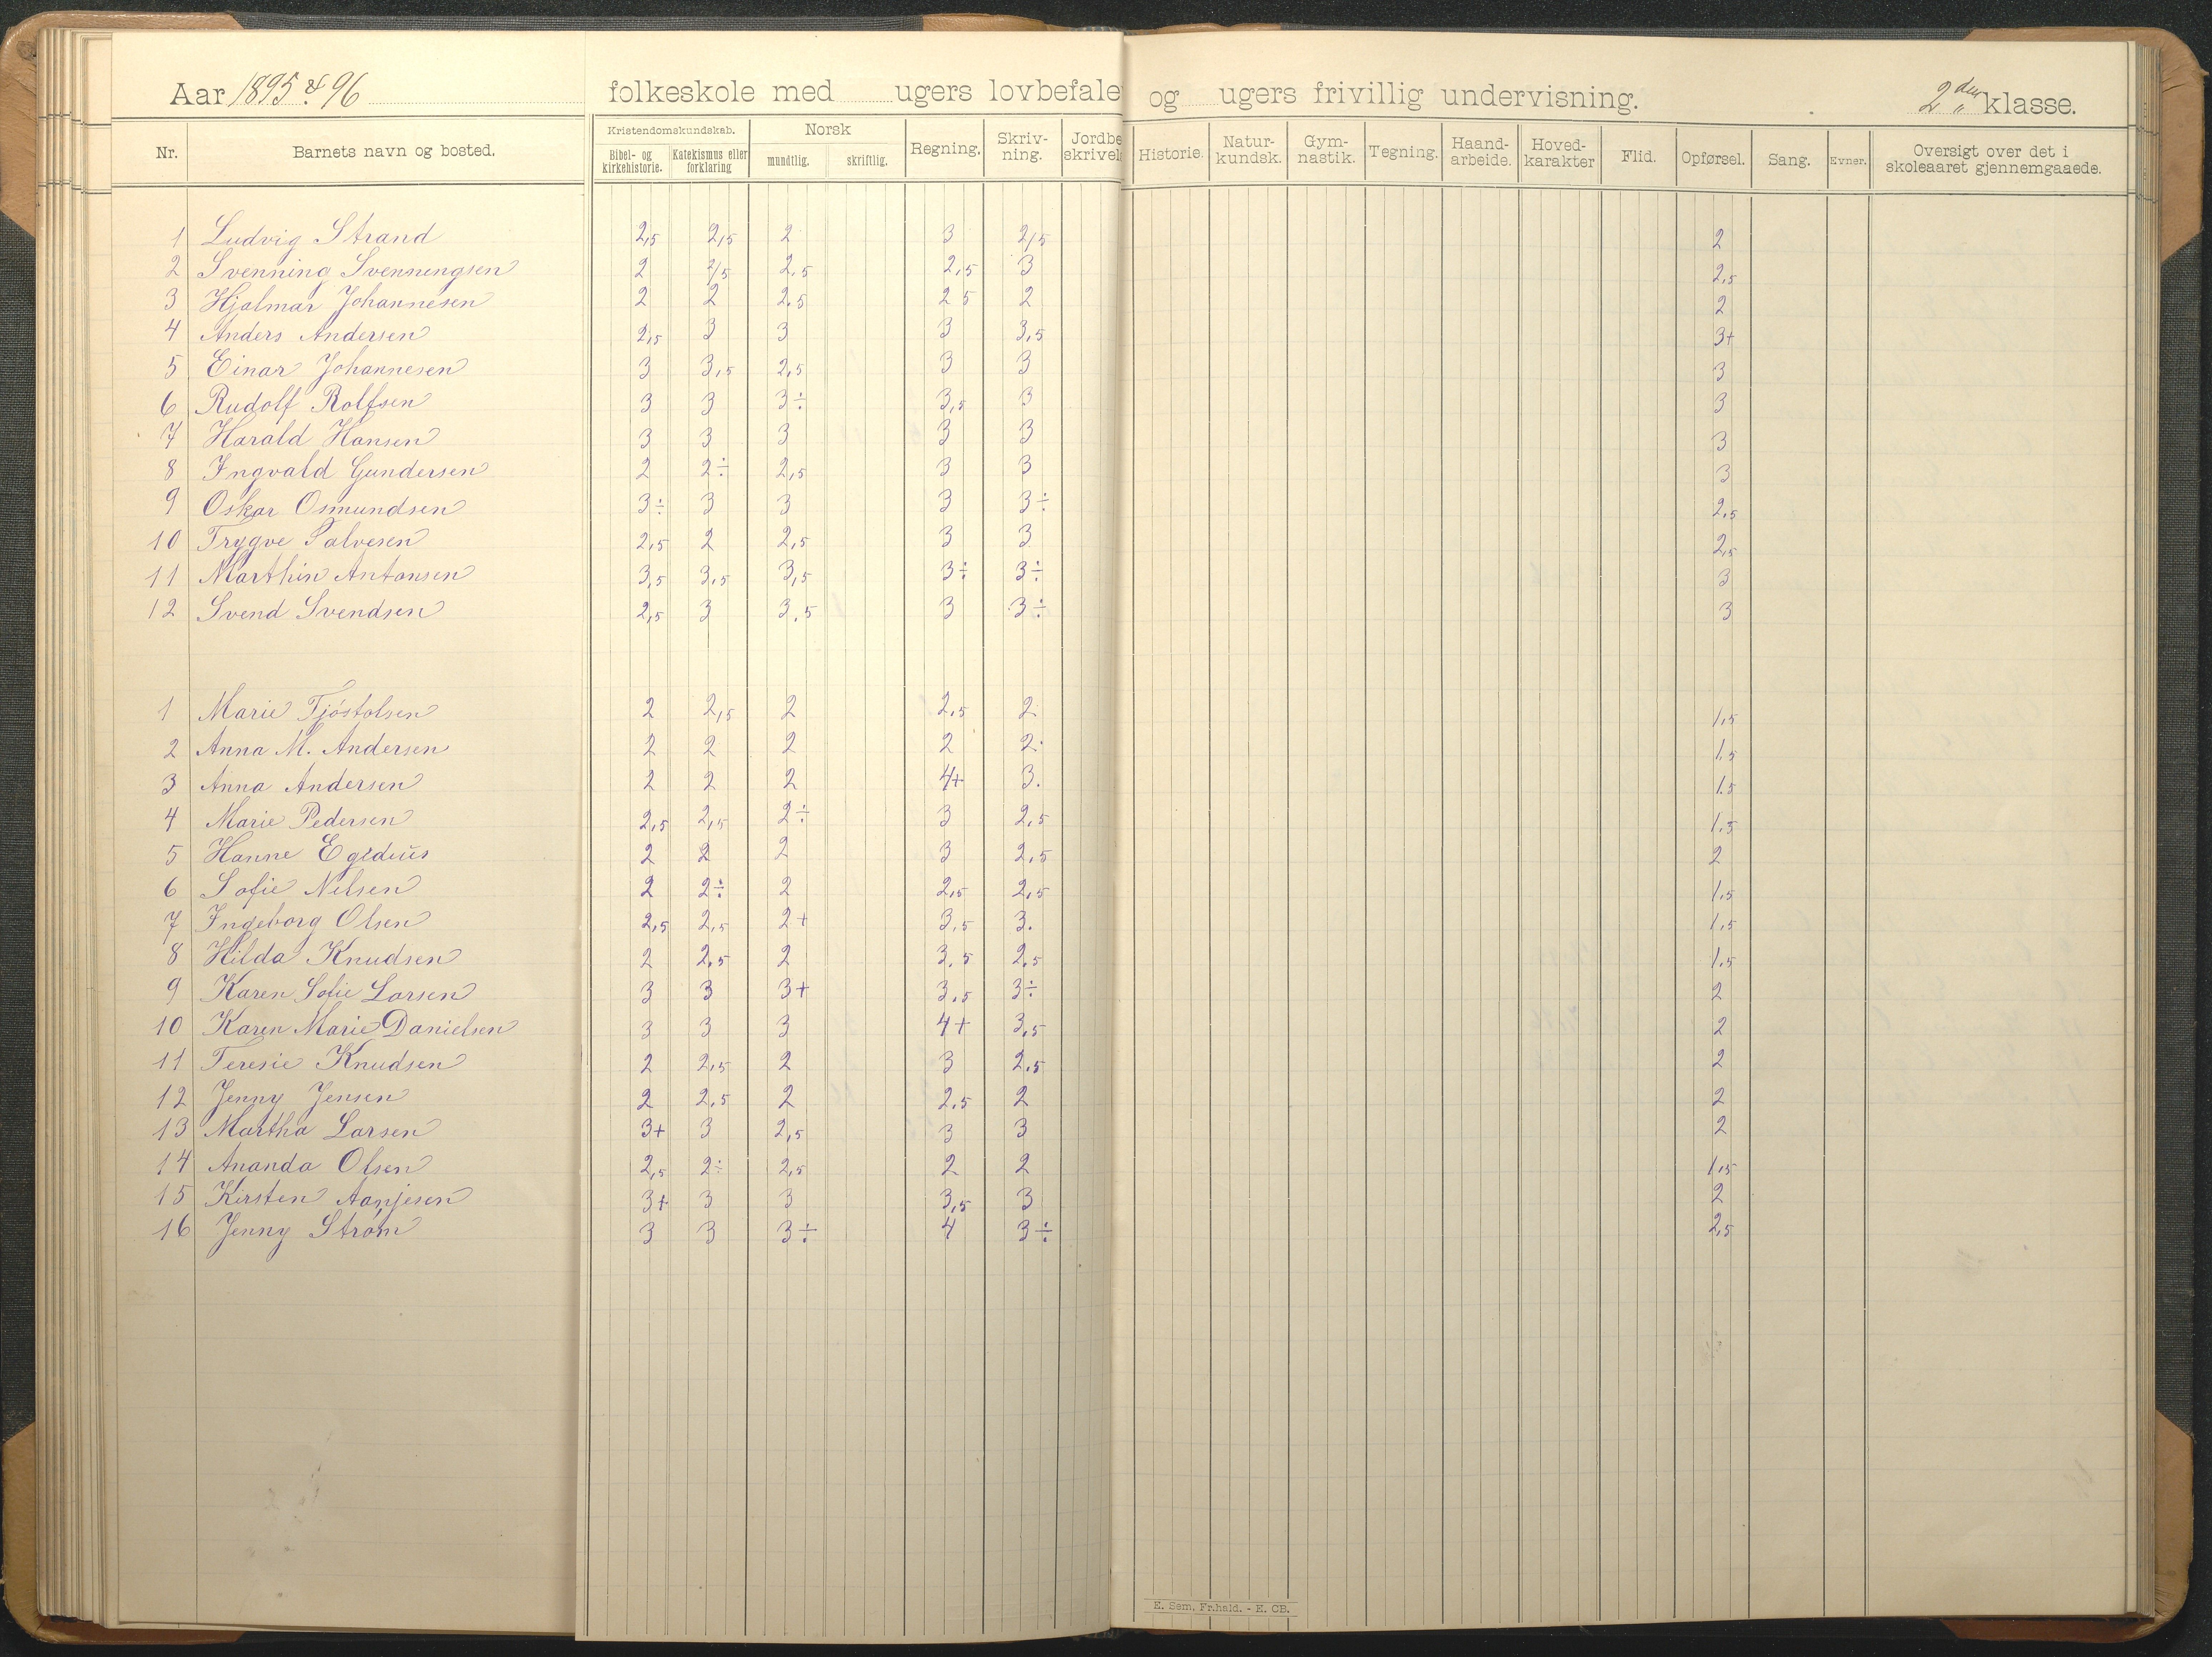 Aar 1895 & 96 folkeskole med ugers lovbefale og ugers frivillig undervisning. 2den klasse.
Nr. Barnets navn og bosted. Kristendomskundskab. Bibel- og kirkehistorie. Katekismus eller forklaring Norsk mundtlig. skriftlig. Regning. Skriv-ning. Jordbe skrivels Historie. Natur-kundsk. Gym-nastik. Tegning. Haand-arbeide. Hoved-karakter Flid. Opførsel. Sang. Evner. Oversigt over det i skoleaaret gjennemgaaede.
1 Ludvig Strand 2,5 2,5 2 3 2,5 2
2 Svenning Svenningsen 2 2,5 2,5 2,5 3 2,5
3 Hjalmar Johannesen 2 2 2,5 2 5 2 2
4 Anders Andersen 2,5 3 3 3 3,5 3+
5 Einar Johannesen 3 3,5 2,5 3 3 3
6 Rudolf Rolfsen 3 3 3÷ 3,5 3 3
7 Harald Hansen 3 3 3 3 3 3
8 Ingvald Gundersen 2 2÷ 2,5 3 3 3
9 Oskar Osmundsen 3÷ 3 3 3 3÷ 2,5
10 Trygve Salvesen 2,5 2 2,5 3 3 2,5
11 Marthin Antonsen 3,5 3,5 3,5 3÷ 3÷ 3
12 Svend Svendsen 2,5 3 3,5 3 3÷ 3
1 Marie Tjöstolsen 2 2,5 2 2,5 2 1,5
2 Anna M. Andersen 2 2 2 2 2. 1.5
3 Anna Andersen 2 2 2 4+ 3. 1.5
4 Marie Pedersen 2,5 2,5 2÷ 3 2,5 1.5
5 Hanne Egidius 2 2 2 3 2,5 2
6 Sofie Nilsen 2 2÷ 2 2,5 2,5 1,5
7 Ingeborg Olsen 2,5 2,5 2+ 3,5 3. 1,5
8 Hilda Knudsen 2 2,5 2 3,5 2,5 1,5
9 Karen Sofie Larsen 3 3 3+ 3,5 3÷ 2
10 Karen Marie Danielsen 3 3 3 4+ 3,5 2
11 Teresie Knudsen 2 2,5 2 3 2,5 2
12 Jenny Jensen 2 2,5 2 2,5 2 2
13 Martha Larsen 3+ 3 2,5 3 3 2
14 Ananda Olsen 2,5 2÷ 2,5 2 2 1,5
15 Kirsten Aanjesen 3+ 3 3 3,5 3 2
16 Jenny Strøm 3 3 3÷ 4 3÷ 2,5
E. Sem, Fr.hald. - E. CB.